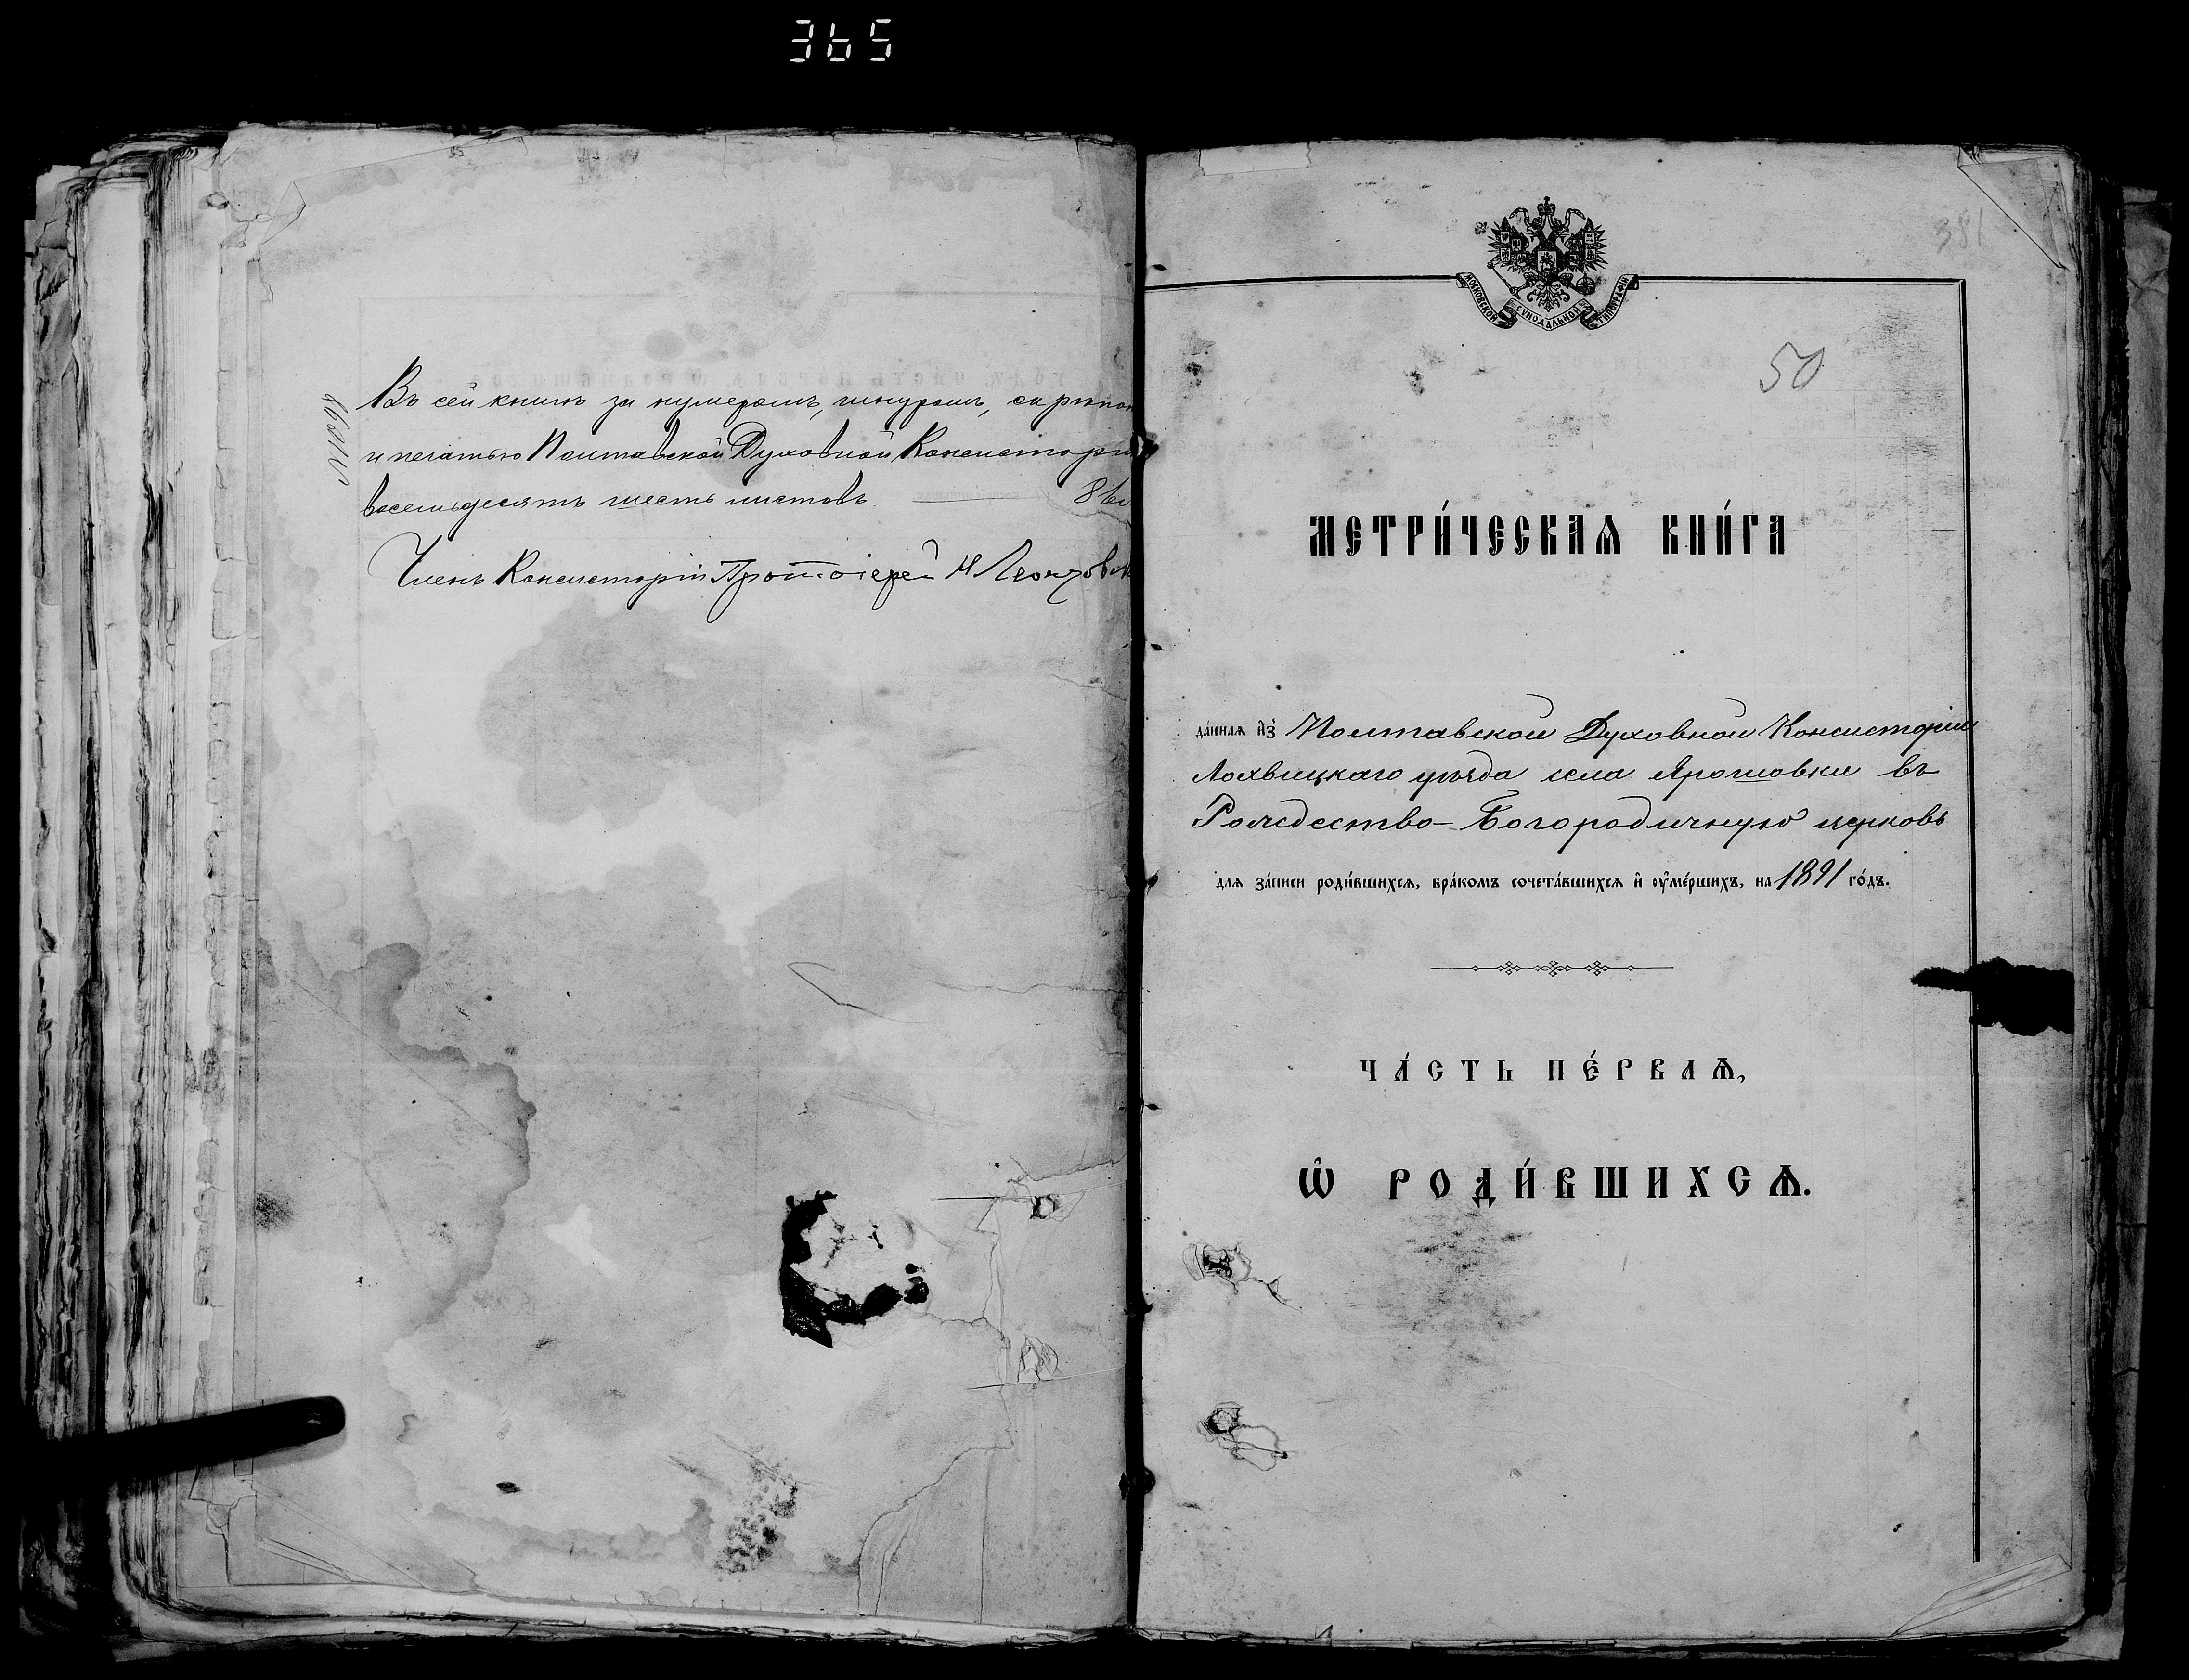 365
Въ сей книгѣ за нумеромъ, шнуромъ, скрѣпою
и печатью Полтавской Духовной Консисторіи
восемьдесятъ шесть листовъ 86
Членъ Консисторіи Протоіерей Н
381
МОСКОВСКОЙ СѴНОДАЛЬНОЙ ТИПОГРАФІИ
50
МЕТРИ́ЧЕСКАѦ КНИ́ГА
да́ннаѧ и҆з̾ Полтавской Духовной Консисторіи
Лохвицкаго уѣзда села Ярошовки въ
Рождество-Богородичную церковь
длѧ за́писи роди́вшихсѧ, бра́комъ сочета́вшихсѧ и҆ ᲂу҆ме́ршихъ, на 1891 го́дъ.
ЧА́СТЬ ПЕ́РВАѦ,
Ѡ҆ РОДИ́ВШИХСѦ.